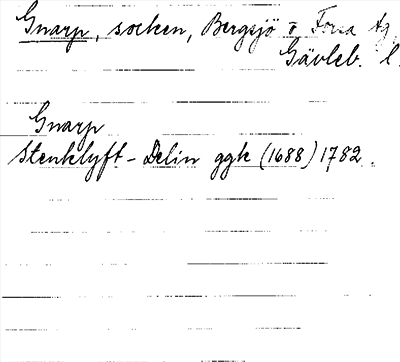 Gnarp, socken, Bergsjö o Forsa tg,
Gävleb. l.
Gnarp
Stenklyft - Delin ggk (1688) 1782.